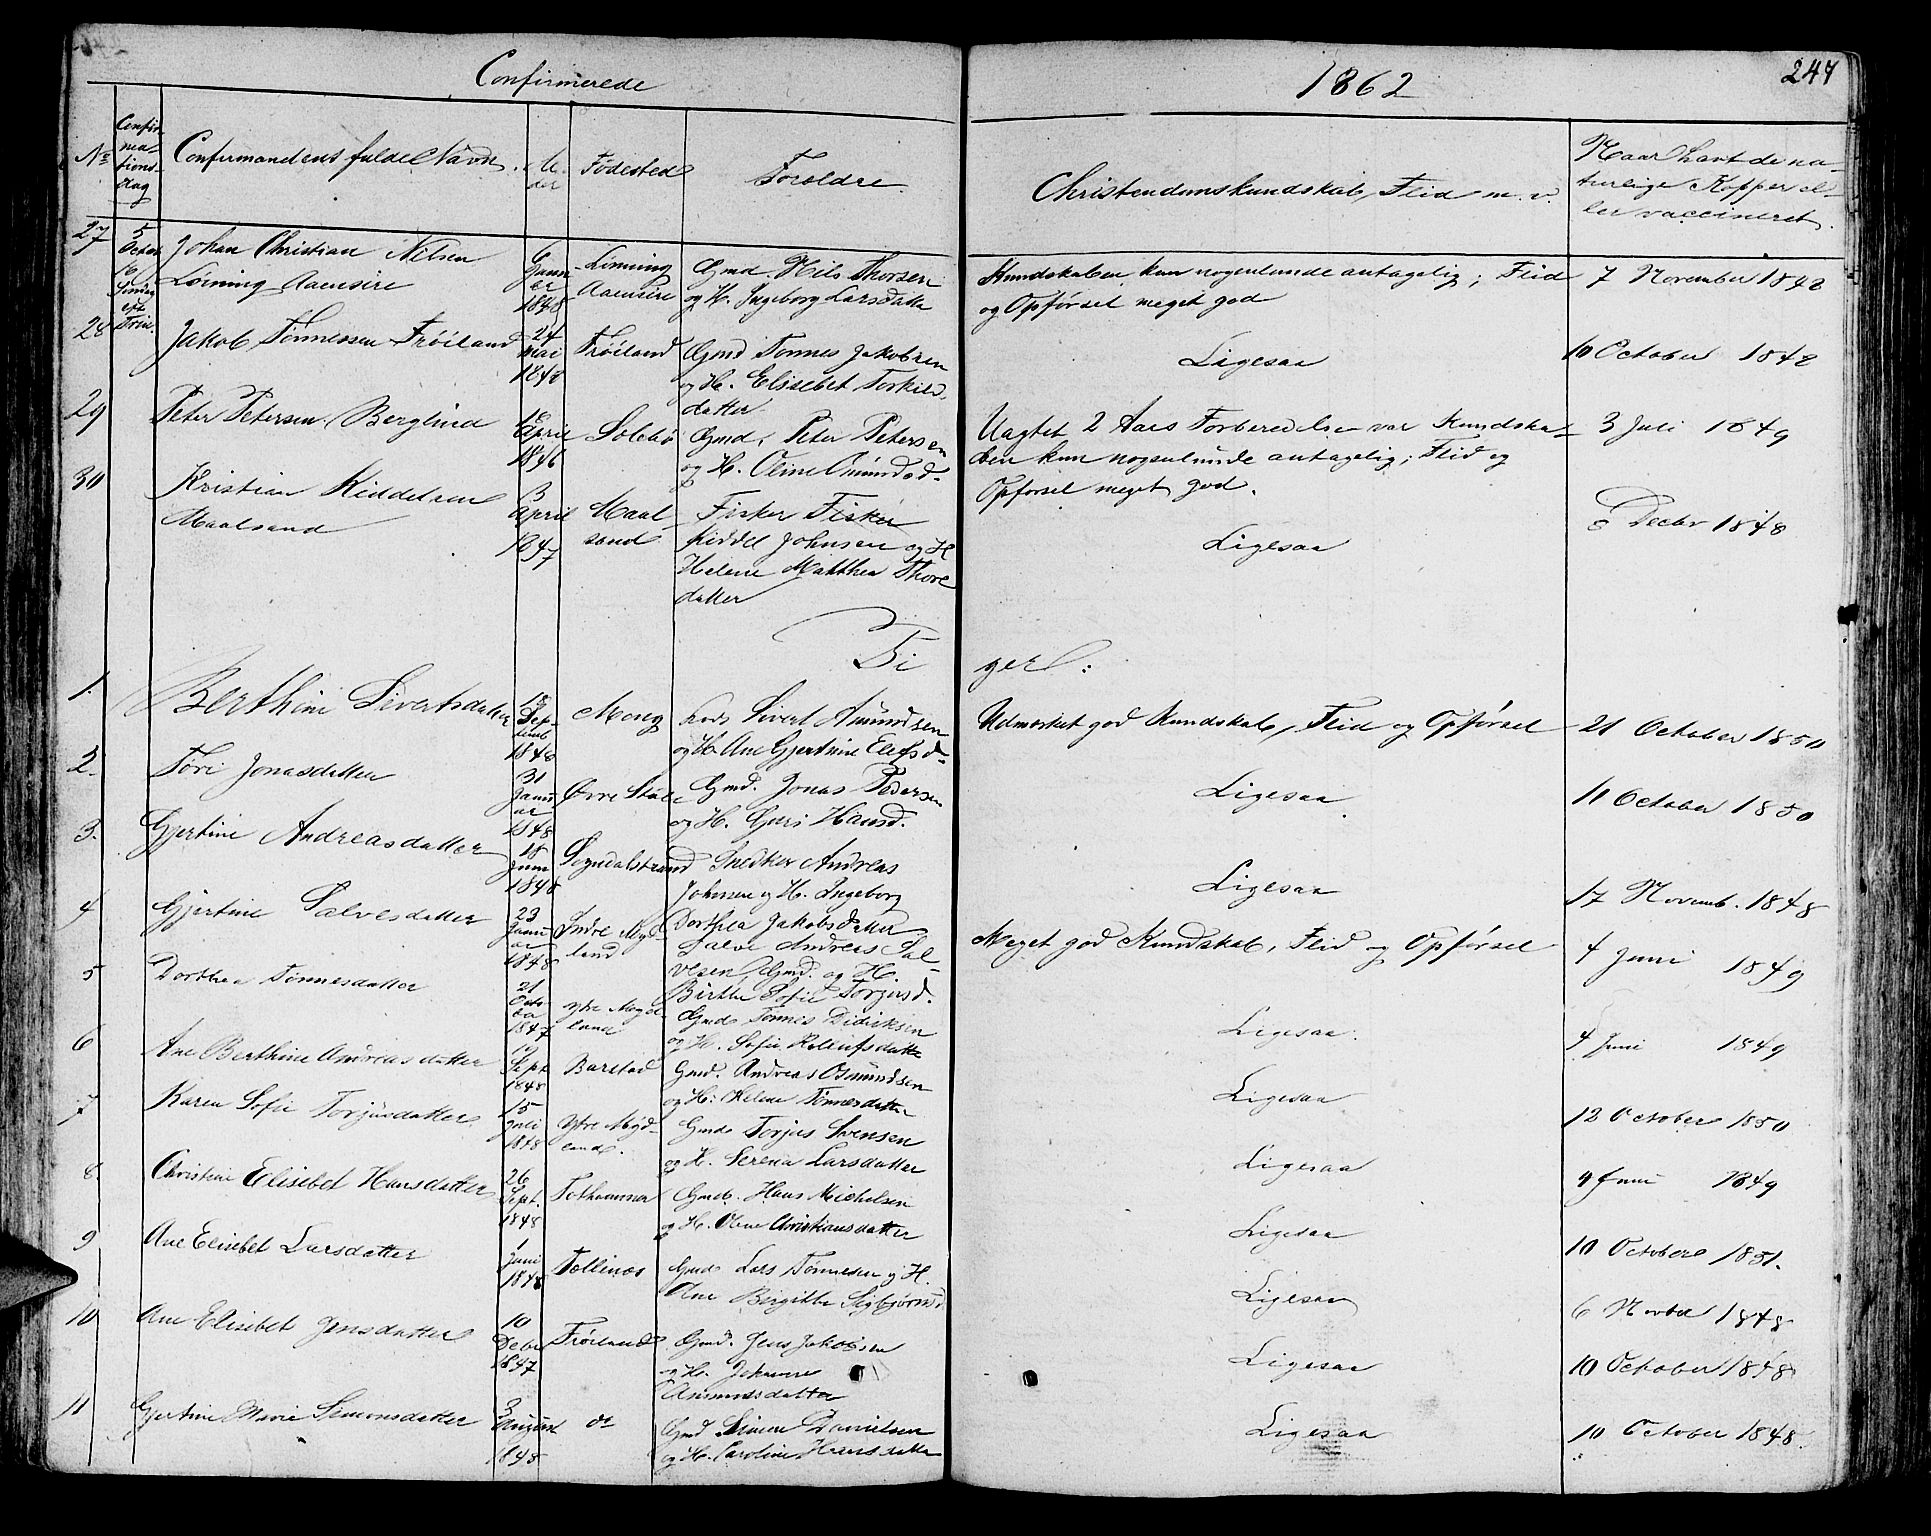 Confirmerede
1862
247
No
Confirmationsdag
Confirmandens fulde Navn.
Alder
Fødested
Forældre.
Christendomskundskab, Flid m. v.
Naar havt de naturlige Kopper eller vaccineret.
27
5 October 16 Søndag eft. Trin.
Johan Christian Nilsen
Lönning Aaensire
Januar 1848
Lönning Aaensire
Gmd. Nils Thorsen
og H. Ingeborg Larsdatter
Kundskaben kun nogenlunde antagelig; Flid
og Opførsel meget god
7 November 1848
28
Jakob Tönnessen Fröiland
24 Mai 1848
Fröiland
Gmd Tönnes Jakobsen
og H. Elisebet Torkilds
datter
Ligesaa
10 October 1848
29
Peter Petersen Berglund
18 April 1846
Solebö
Gmd. Peter Petersen
og H. Oline Omundsd.
Uagtet 2 Aars Forberedelse var Kundska-
ben kun nogenlunde antagelig; Flid og
Opførsel meget god.
3 Juli 1849
30
Kristian Kiddelsen
Maalsand
3 April 1847
Maal
sand
Fisker Fisker
Kiddel Johnsen og H
Helene Matthea Thore
datter
Ligesaa
8 Decbr 1848
Piger:
1.
Berthine Sivertsdatter
18 Septemb 1848
Mong
Lods Sivert Amundsen
og H. Ane Gjertine Elefsd.
Udmærket god Kundskab, Flid og Opførsel
21 October 1850
2.
Töri Jonasdatter
31 Januar 1848
Øvre Stöle
Gmd. Jonas Pedersen
og H. Guri Hansd.
Ligesaa
11 October 1850
3.
Gjertine Andreasdatter
18 Juni 1848
Sogndalstrand
Snedker Andreas
Johnsen og H. Ingeborg
Dorthea Jakobsdatter
Ligesaa
17 Novemb. 1848
4
Gjertine Salvesdatter
23 Januar 1848
Indre Myd-
land
Salve Andreas Sal-
vesen, Gmd. og H.
Birthe Sofie Torjusd.
Meget god Kundskab, Flid og Opførsel
4 Juni 1849
5
Dorthea Tönnesdatter
21 October 1847
Ytre Myd-
land
Gmd Tönnes Didriksen
og H. Sofie Rolenfsdatter
Ligesaa.
4 Juni 1849
6
Ane Berthine Andreasdatter
Sept 1848
Barstad
Gmd. Andreas Osmundsen
og H. Helene Tönnesdatter
Ligesaa
12 October 1850
7
Karen Sofie Torjusdatter
15 Juli 1848
Ytre Myd-
land.
Gmd Torjus Svensen
og H. Serena Larsdatter
Ligesaa
4 Juni 1849
8.
Christine Elisebet Hansdatter
26 Sept. 1848
Tothammer
Gmd. Hans Michelsen
og H. Oline Christiansdatter
Ligesaa
10 October 1851.
9
Ane Elisebet Larsdatter
1 Juni 1848
Tællinæs
Gmd Lars Tönnesen og H.
Ane Birgitte Sigbjörnsd
Ligesaa
6 Novbr 1848
10
Ane Elisebet Jensdatter
10 Decbr 1847
Fröiland
Gmd. Jens Jakobsen
og H. Johanne
Asmundsdatter
Ligesaa
10 October 1848
11
Gjertine Marie Simonsdatter
3 August 1848
do
Gmd Simon Danielsen
og H. Caroline Hansdatter
Ligesaa
10 October 1848.